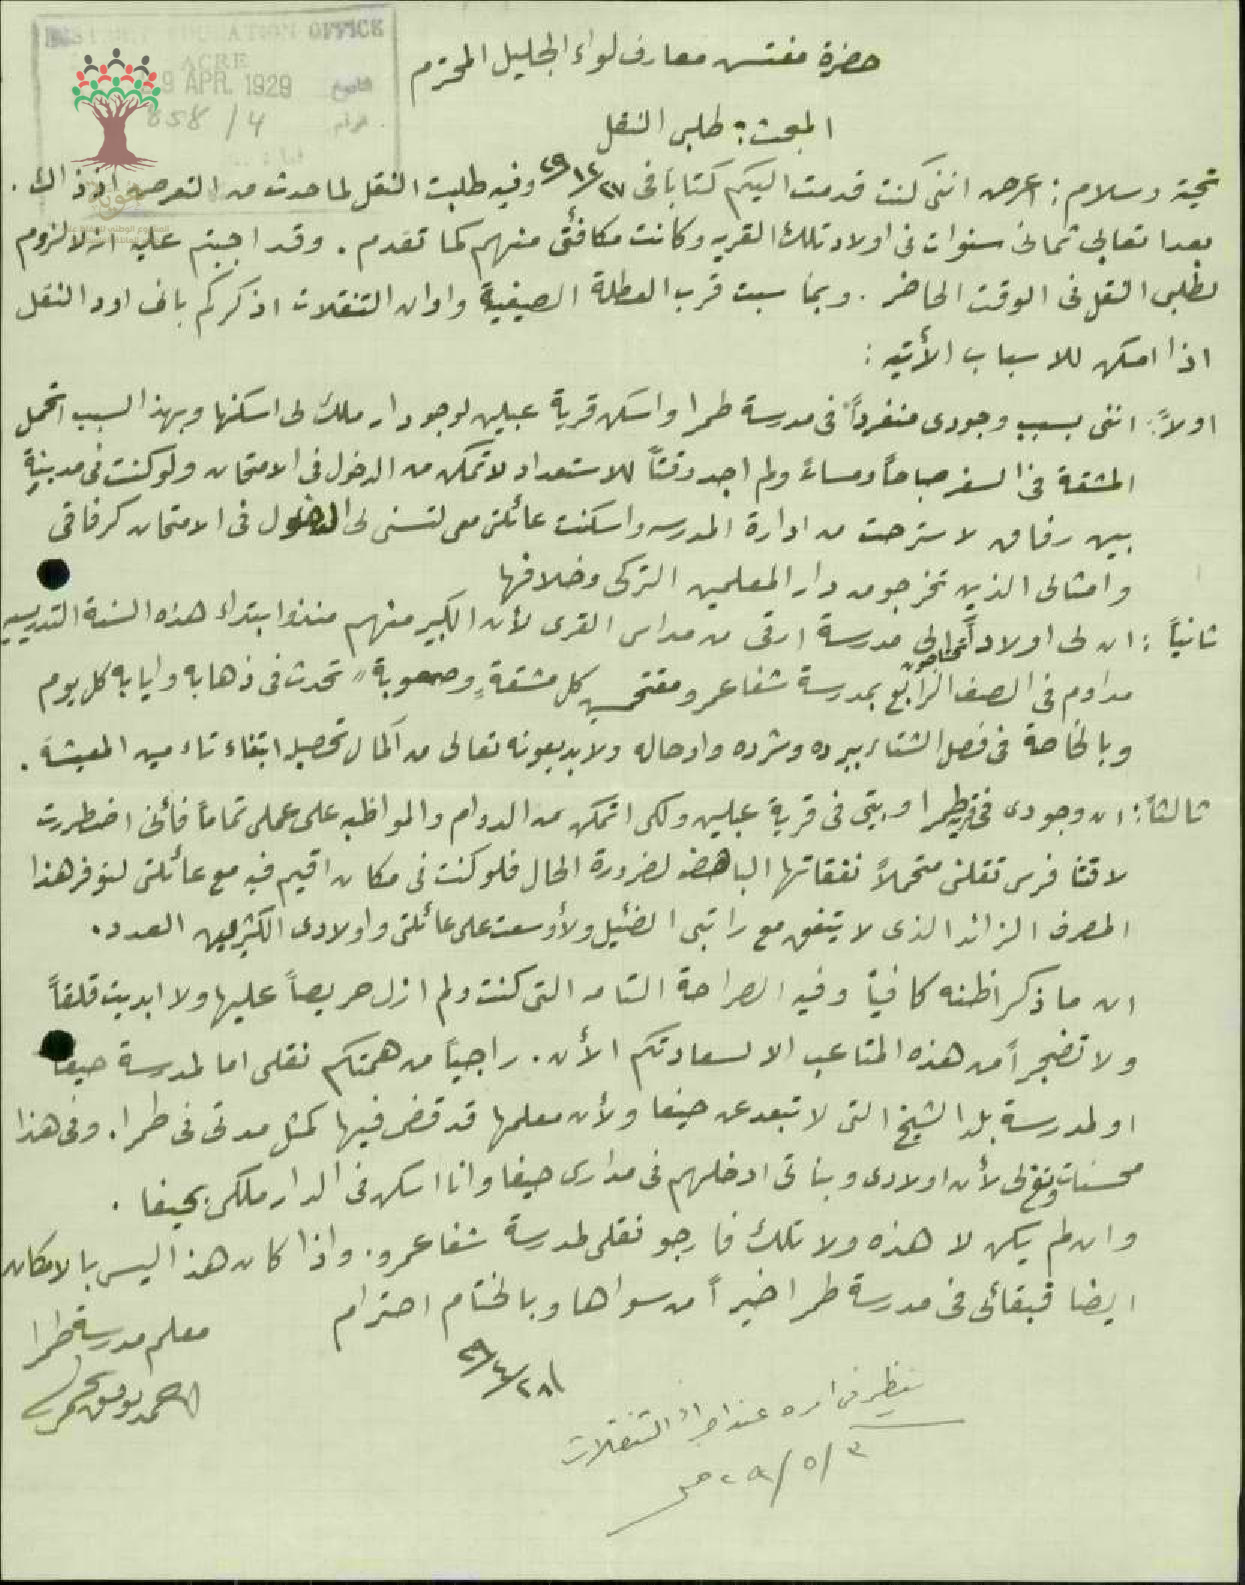 DISTRICT EDUCATION OFFICE
ACRE
29 APR. 1929
858/4
حضرة مفتش معارف لواء الجليل المحترم
المبحث: طلبي النقل
تحية وسلام: اعرض انني كنت قدمت اليكم كتاباً في وفيه طلبت النقل لما حدث من التعرض اذ ذاك.
بعد اتعابي ثماني سنوات في اولاد تلك القريه وكانت مكافئتي منهم كما تقدم. وقد اجبتم عليه انه لا لزوم
لطلبي النقل في الوقت الحاضر. وبمناسبت قرب العطلة الصيفية واوان التنقلات اذكركم باني اود النقل
اذا امكن للاسباب الأتيه:
اولاً: انني بسبب وجودى منفرداً في مدرسة طمرا واسكن قرية عبلين لوجود دار ملك لى اسكنها وبهذا السبب اتحمل
المشقة في السفر صباحاً ومساءً ولم اجد وقتاً للاستعداد لاتمكن من الدخول في الامتحان ولو كنت في مدينةٍ
بين رفاق لاسترحت من ادارة المدرسه واسكنت عائلتي معى لتسنى لى الدخول في الامتحان كرفاقي
وامثالى الذين تخرجو من دار المعلمين التركى وخلافها
ثانياً: ان لى اولاداً الى مدرسة ارقى من مدارس القرى لأن الكبير منهم منذ ابتداء هذه السنة التدريسيه
مداوم في الصف الرابع بمدرسة شفاعمرو مقتحمين كل مشقةٍ وصعوبة تحدث في ذهابه وايابه كل يوم
وبالخاصة في فصل الشتاء ببرده وشرده واوحاله ولا بد بعونه تعالى من اكمال تحصيله ابتغاء تأمين المعيشة.
ثالثاً: ان وجودى في طمرا وبيتى في قرية عبلين ولكى اتمكن من الدوام والمواظبه على عملى تماماً فأنني اضطررت
لاقتنا فرس تنقلني متحملاً نفقاتها الباهضه لضرورة الحال فلو كنت في مكان اقيم فيه مع عائلتى لتوفر هذا
المصرف الزائد الذى لا يتفق مع راتبى الضئيل ولأوسعت على عائلتى واولادى الكثيرين العدد.
ان ما ذكر اظنه كافياً وفيه الصراحة التامه التى كنت ولم ازل حريصاً عليها ولا ابديت قلقاً
ولا تضجراً من هذه المتاعب الا لسعادتكم الأن. راجياً من همتكم نقلى اما لمدرسة حيفا
او لمدرسة بلد الشيخ التى لا تبعد عن حيفا ولأن معلمها قد قضى فيها كمثل مدتى في طمرا. وفي هذا
محسنات ونفع لى لأن اولادى وبناتى ادخلهم في مدارس حيفا وانا اسكن في الدار ملكى بحيفا.
وان لم يكن لا هذه ولا تلك فارجو نقلى لمدرسة شفاعمرو. واذا كان هذا ليس بالامكان
ايضا فبقائى في مدرسة طمرا خيراً من سواها وبالختام احترام
معلم مدرسة طمرا
٢٨/٤/٢٩
احمد توفيق
ينظر في امره عند اجراء التنقلات
٣/٥/٢٩